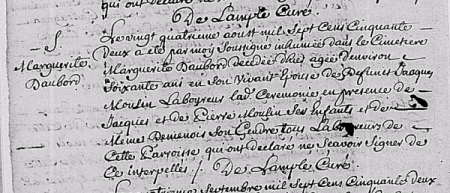 qui ont déclaré ne
De Lample Curé
Le vingt quatrieme aoust mil Sept Cens Cinquante
Deux a eté par moy Soussigné inhumée dans le Cimetiere
S
Marguerite
Baubord
Marguerite Baubord décédée d'hier agée d'environ
Soixante ans en Son Vivant Epouse de deffunct Jacques
Moulin Laboureur lad. Ceremonie en presence de
Jacques et de Pierre Moulin Ses Enfants et de
Meme Demenois Son Gendre tous Laboureurs de
Cette Parroisse qui ont declaré ne Scavoir Signer de
Ce interpellés /. De Lample Curé
Septembre mil Sept Cens Cinquante deux